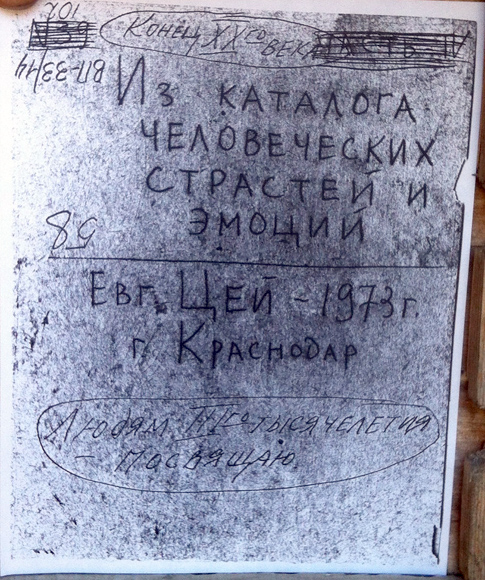 Конец XXго века
Из каталога
человеческих
страстей и
эмоций
58
Евг. Цей – 1973 г.
г. Краснодар
Людям IIIго тысячелетия
– посвящаю